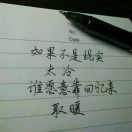 No.
Date
如果不是现实
太冷
谁愿意靠回忆来
取暖